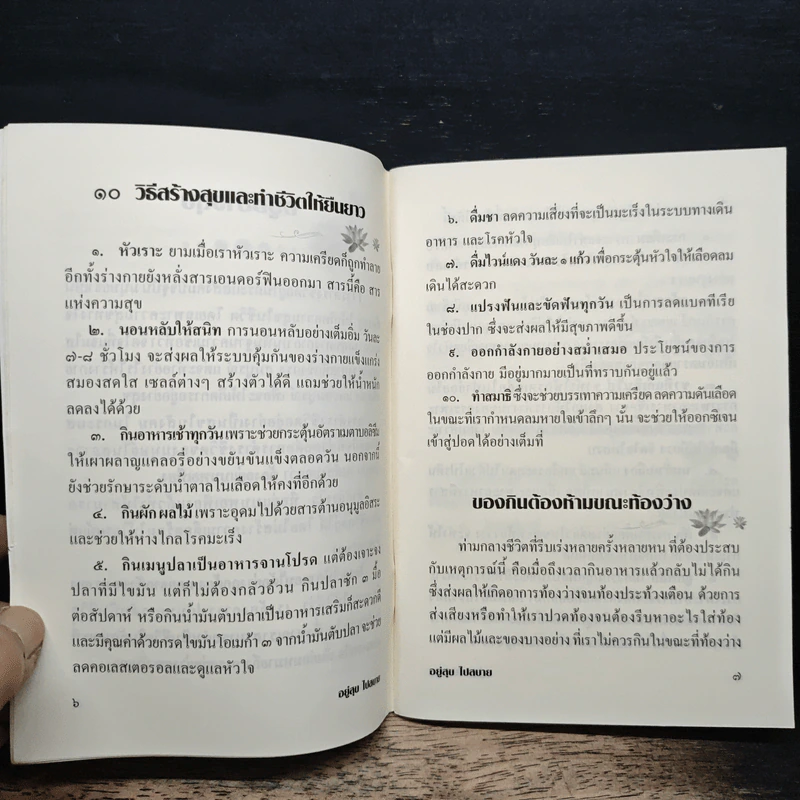 ๑๐ วิธีสร้างสุขและทำชีวิตให้ยืนยาว
๑. หัวเราะ ยามเมื่อเราหัวเราะ ความเครียดก็ถูกทำลาย
อีกทั้งร่างกายยังหลั่งสารเอนดอร์ฟินออกมา สารนี้คือ สาร
แห่งความสุข
๒. นอนหลับให้สนิท การนอนหลับอย่างเต็มอิ่ม วันละ
๗-๘ ชั่วโมง จะส่งผลให้ระบบคุ้มกันของร่างกายแข็งแกร่ง
สมองสดใส เซลล์ต่างๆ สร้างตัวได้ดี แถมช่วยให้น้ำหนัก
ลดลงได้ด้วย
๓. กินอาหารเช้าทุกวัน เพราะช่วยกระตุ้นอัตราเมตาบอลิซึม
ให้เผาผลาญแคลอรี่อย่างขยันขันแข็งตลอดวัน นอกจากนี้
ยังช่วยรักษาระดับน้ำตาลในเลือดให้คงที่อีกด้วย
๔. กินผัก ผลไม้ เพราะอุดมไปด้วยสารต้านอนุมูลอิสระ
และช่วยให้ห่างไกลโรคมะเร็ง
๕. กินเมนูปลาเป็นอาหารจานโปรด แต่ต้องเจาะจง
ปลาที่มีไขมัน แต่ก็ไม่ต้องกลัวอ้วน กินปลาซัก ๓ มื้อ
ต่อสัปดาห์ หรือกินน้ำมันตับปลาเป็นอาหารเสริมก็สะดวกดี
และมีคุณค่าด้วยกรดไขมันโอเมก้า ๓ จากน้ำมันตับปลา จะช่วย
ลดคอเลสเตอรอลและดูแลหัวใจ
อยู่สุข ไปสบาย
๖
๖. ดื่มชา ลดความเสี่ยงที่จะเป็นมะเร็งในระบบทางเดิน
อาหาร และโรคหัวใจ
๗. ดื่มไวน์แดง วันละ ๑ แก้ว เพื่อกระตุ้นหัวใจให้เลือดลม
เดินได้สะดวก
๘. แปรงฟันและขัดฟันทุกวัน เป็นการลดแบคทีเรีย
ในช่องปาก ซึ่งจะส่งผลให้มีสุขภาพดีขึ้น
๙. ออกกำลังกายอย่างสม่ำเสมอ ประโยชน์ของการ
ออกกำลังกาย มีอยู่มากมายเป็นที่ทราบกันอยู่แล้ว
๑๐. ทำสมาธิ ซึ่งจะช่วยบรรเทาความเครียด ลดความดันเลือด
ในขณะที่เรากำหนดลมหายใจเข้าลึกๆ นั้น จะช่วยให้ออกซิเจน
เข้าสู่ปอดได้อย่างเต็มที่
ของกินต้องห้ามขณะท้องว่าง
ท่ามกลางชีวิตที่รีบเร่งหลายครั้งหลายหน ที่ต้องประสบ
กับเหตุการณ์นี้ คือเมื่อถึงเวลากินอาหารแล้วกลับไม่ได้กิน
ซึ่งส่งผลให้เกิดอาการท้องว่างจนท้องประท้วงเตือน ด้วยการ
ส่งเสียงหรือทำให้เราปวดท้องจนต้องรีบหาอะไรใส่ท้อง
แต่มีผลไม้และของบางอย่าง ที่เราไม่ควรกินในขณะที่ท้องว่าง
อยู่สุข ไปสบาย
๗